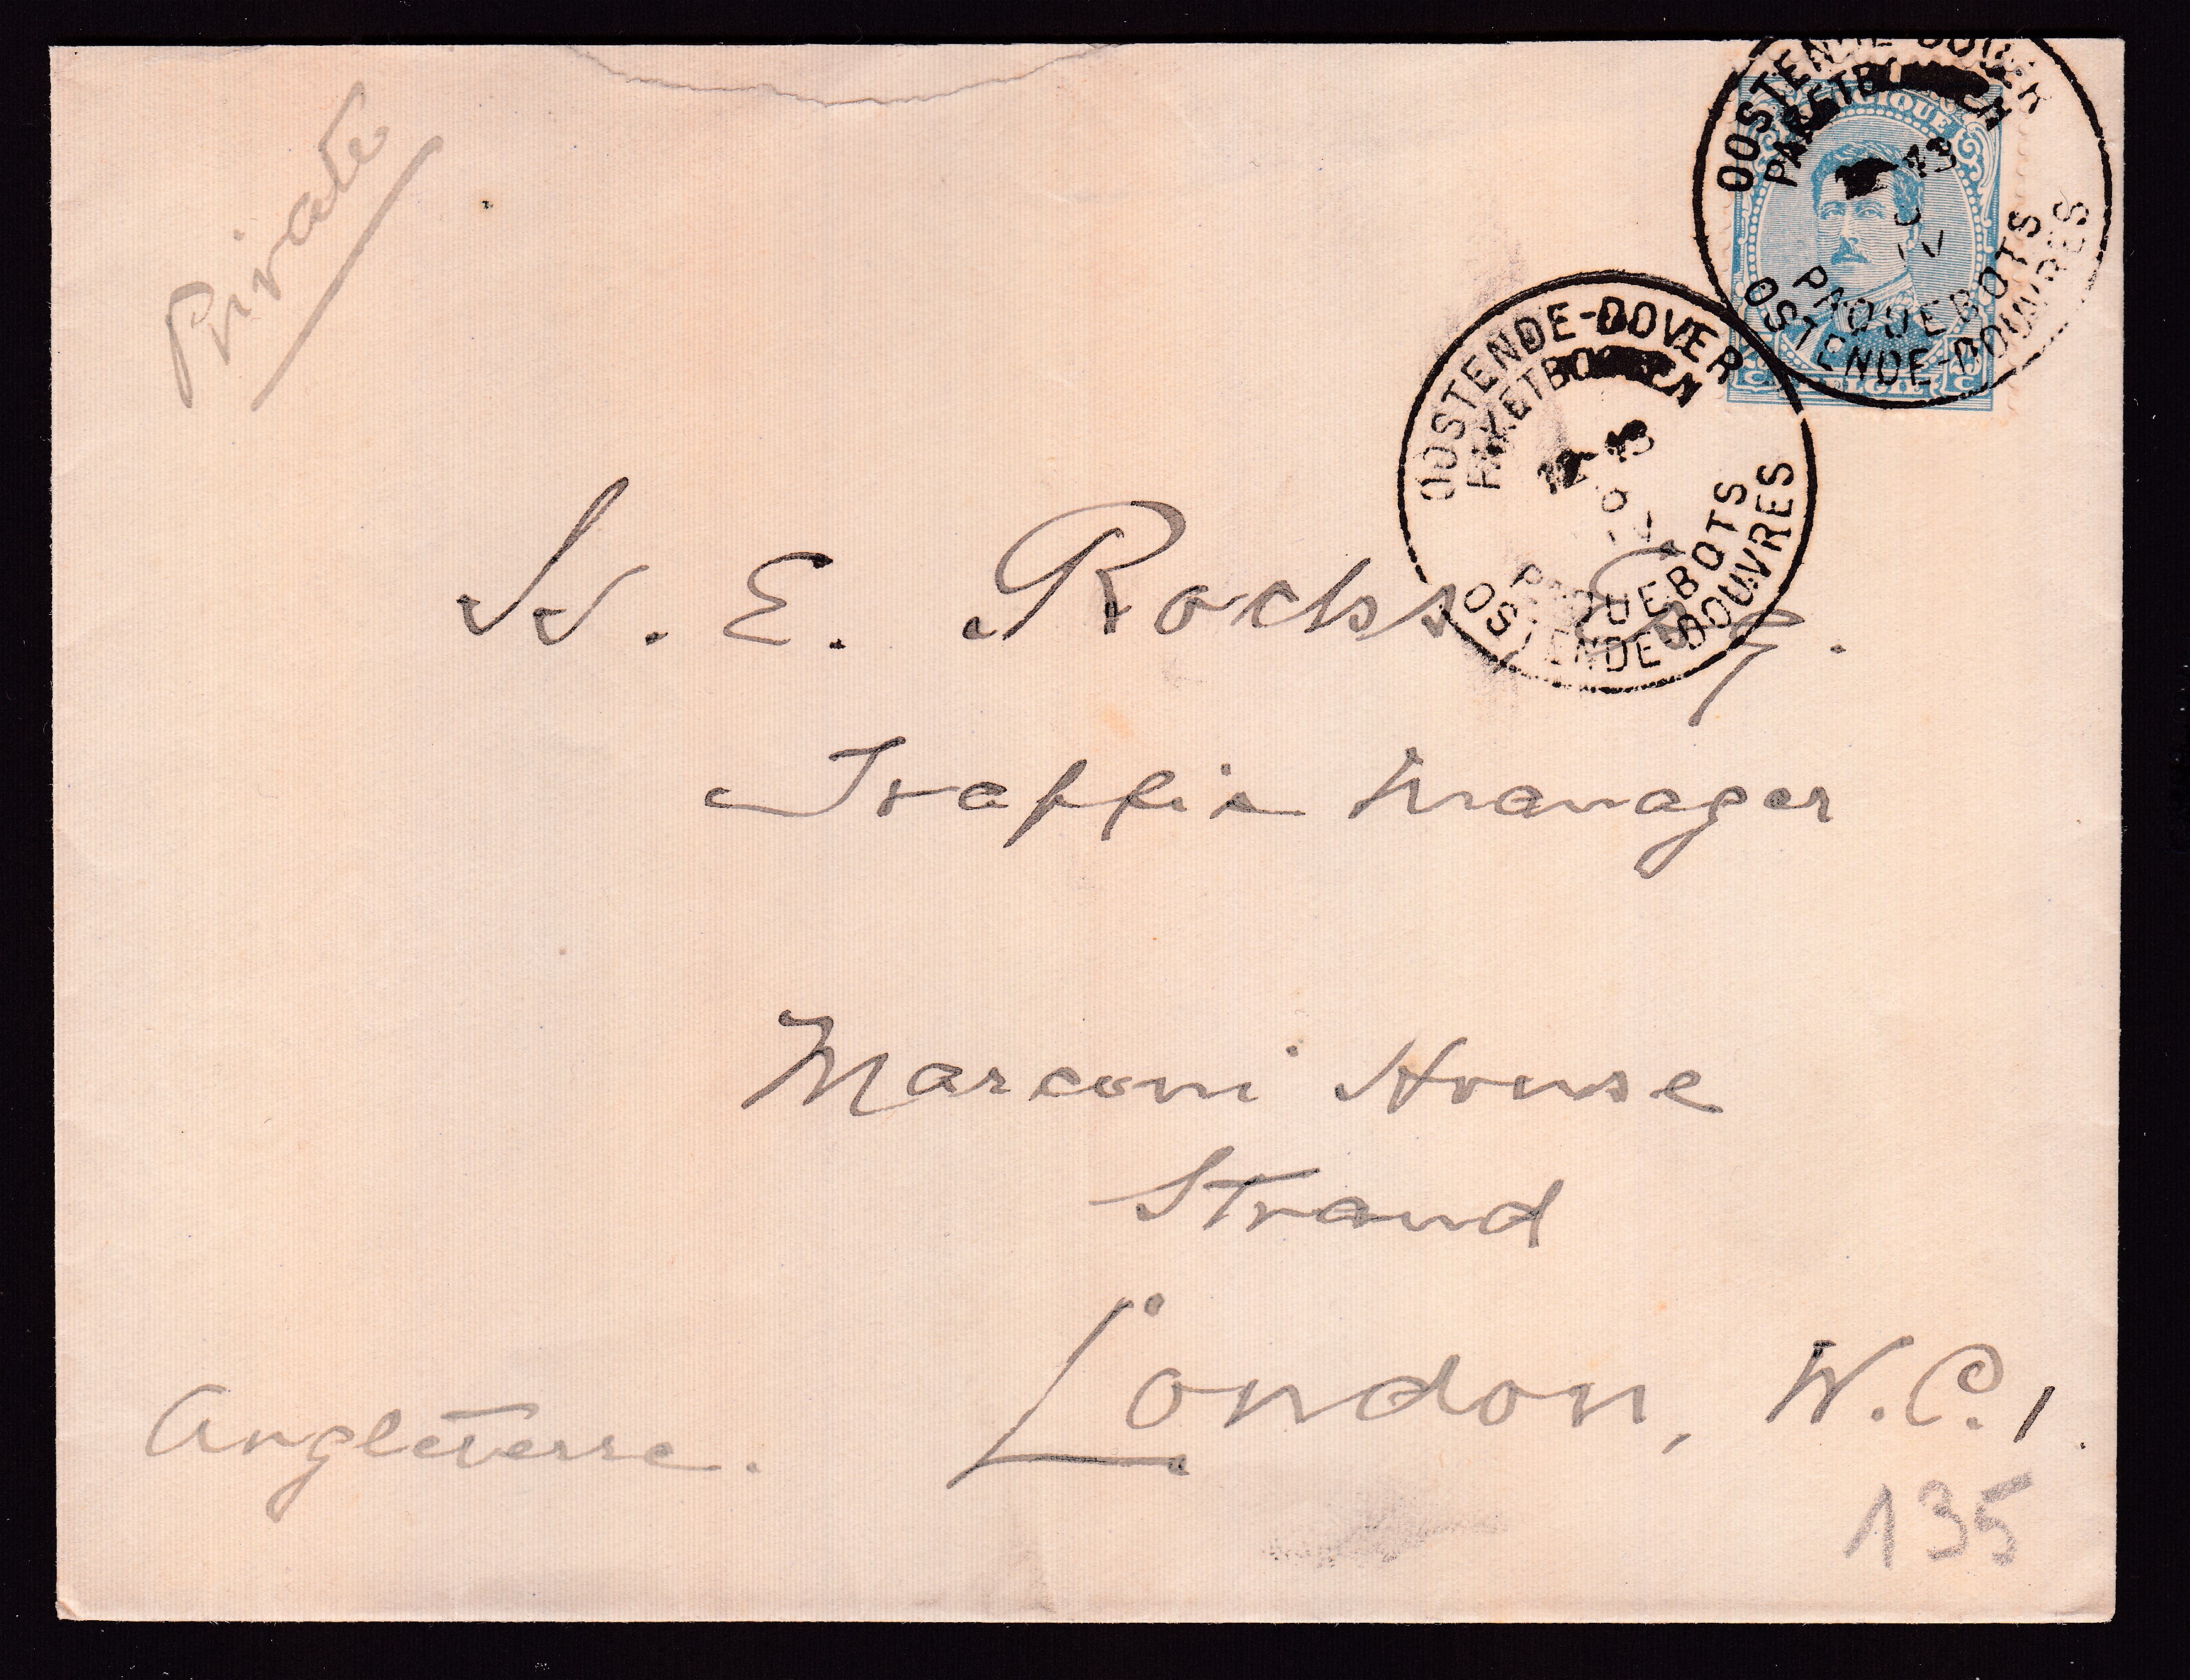 Private
OOSTENDE-DOVER
PAKETBOOTEN
PAQUEBOTS
OSTENDE-DOUVRES
BELGIQUE
C BELGIE C
OOSTENDE-DOVER
PAKETBOOTEN
12-13
PAQUEBOTS
OSTENDE-DOUVRES
W. E. Rochs Esq.
Traffic Manager
Marconi House
Strand
London, W.C.1.
Angleterre.
135